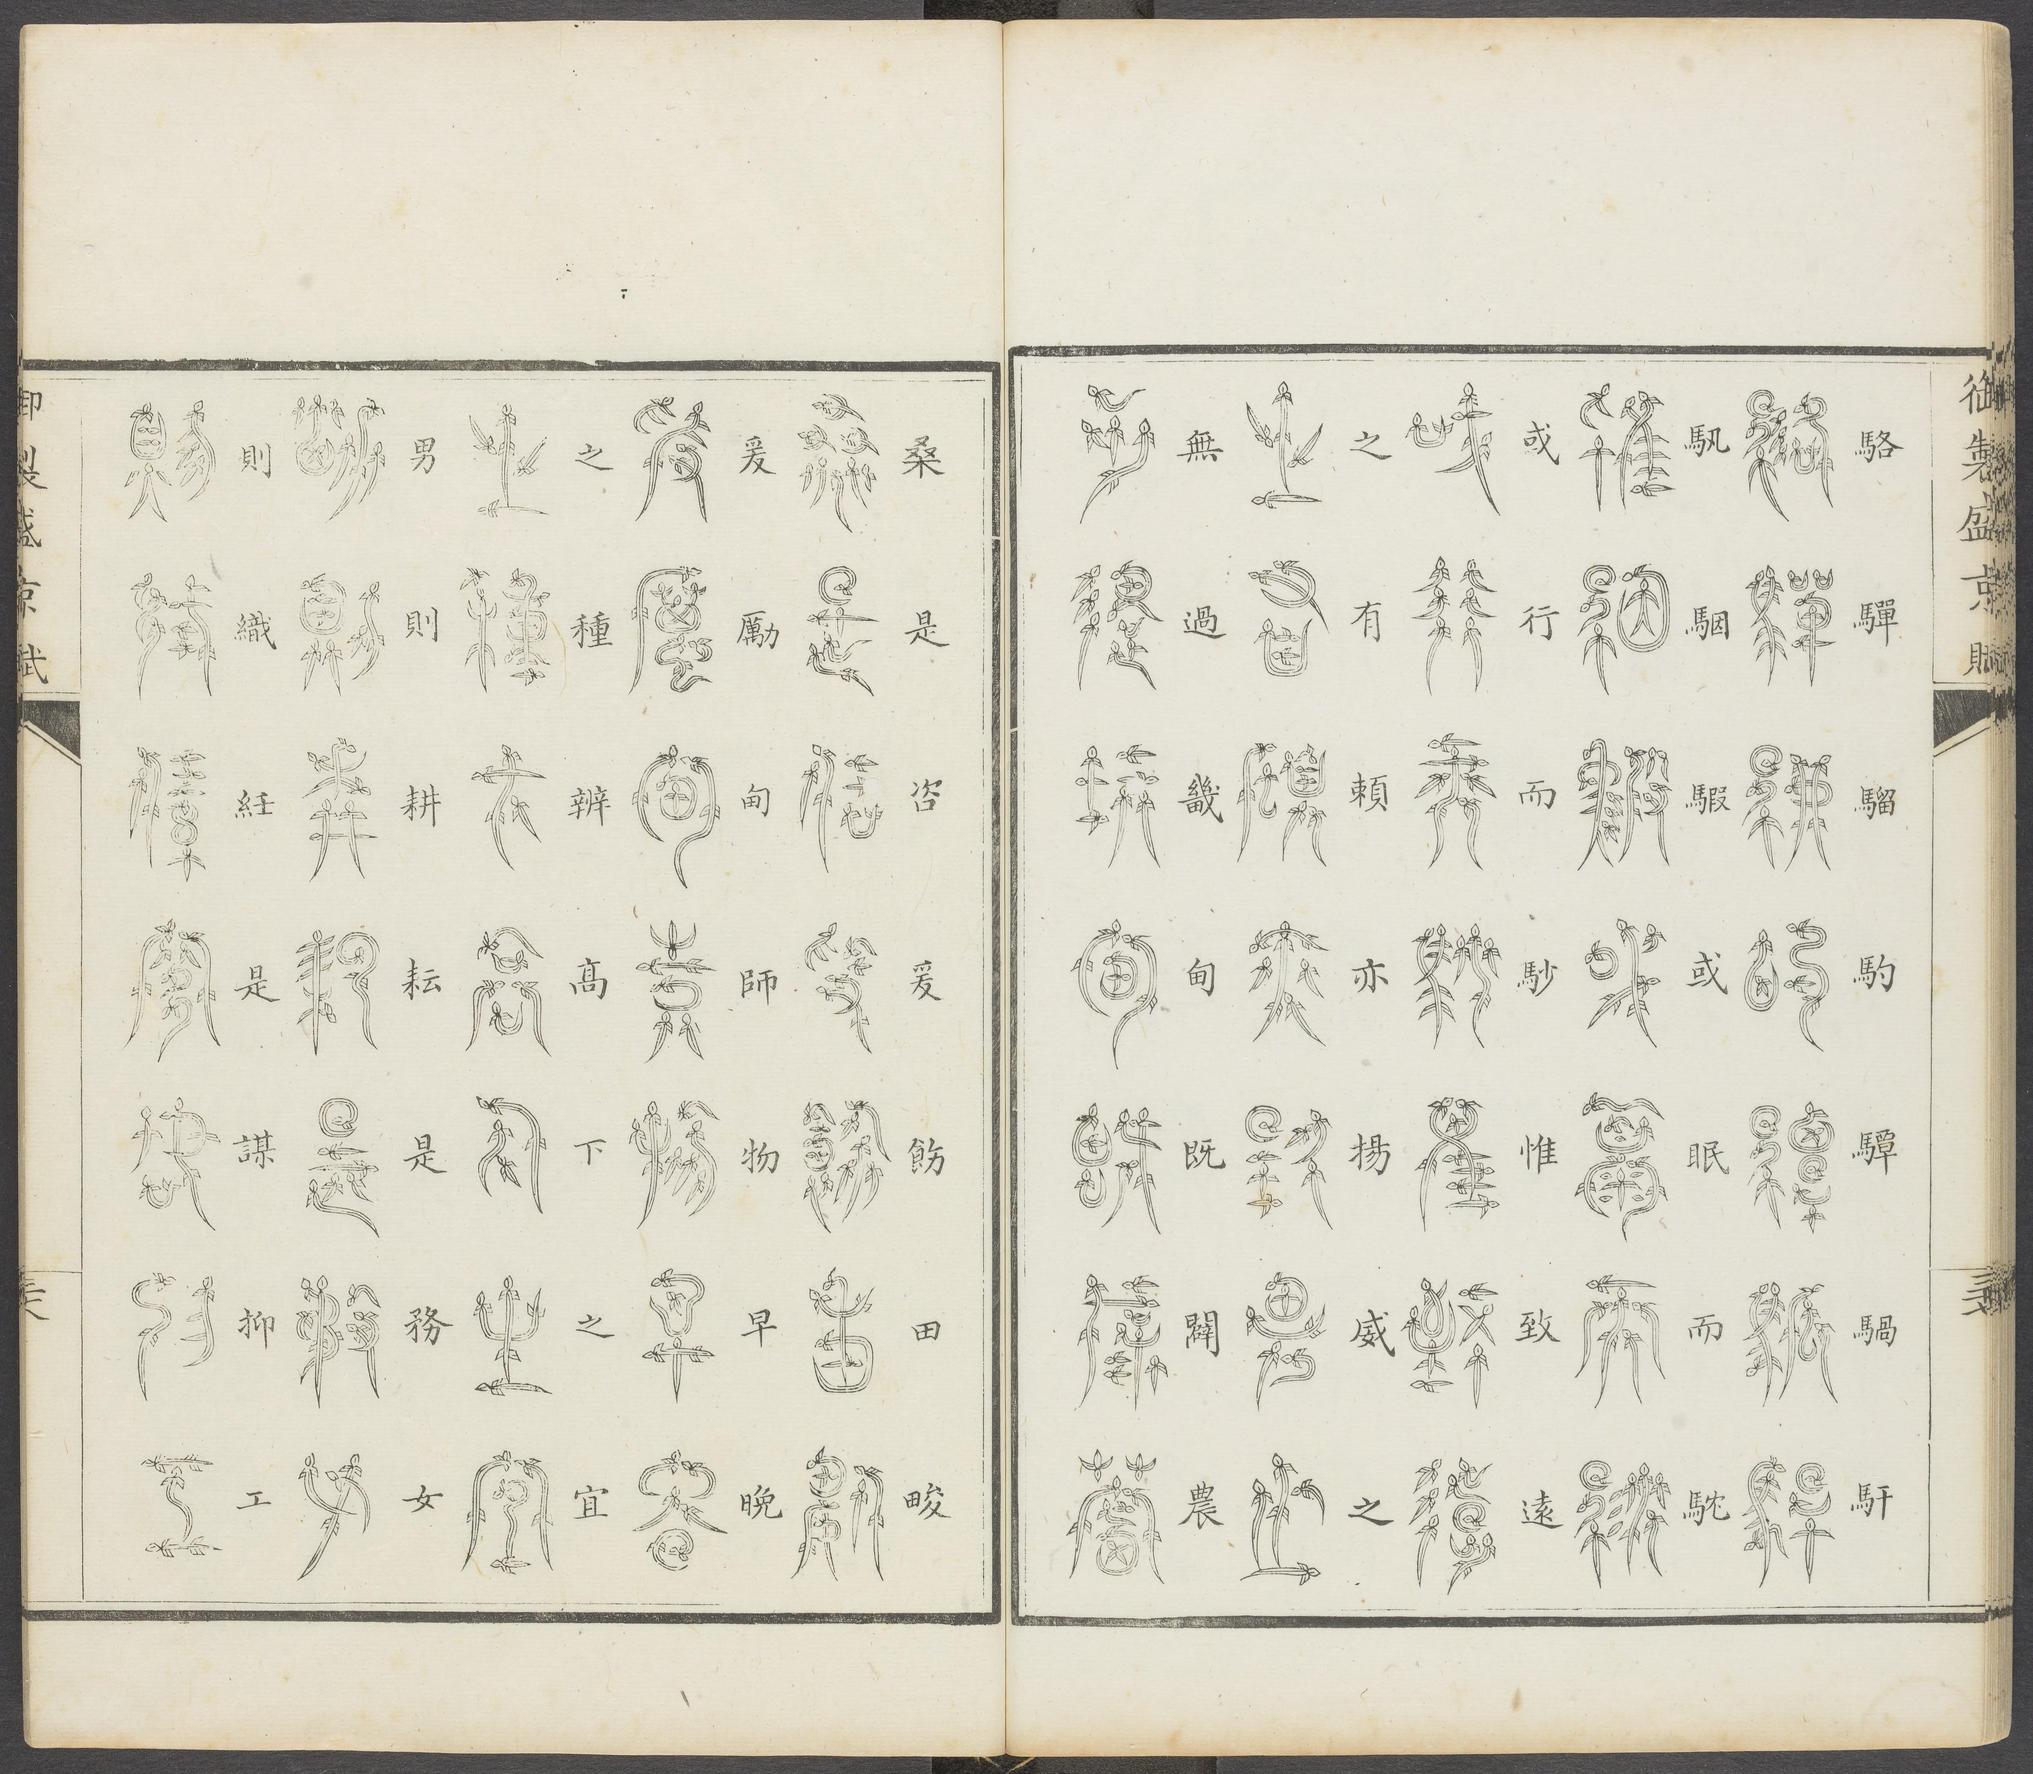 御製盛京賦
駱驒騮馰驔騧馯
馭駰騢或眠而駝
或行而䮭惟致遠
之有賴亦揚威之
無過畿甸既闢農
桑是咨爰飭田畯
爰勵甸師物早晩
之種辨高下之宜
男則耕耘是務女
則織紝是謀抑工
御製盛京賦